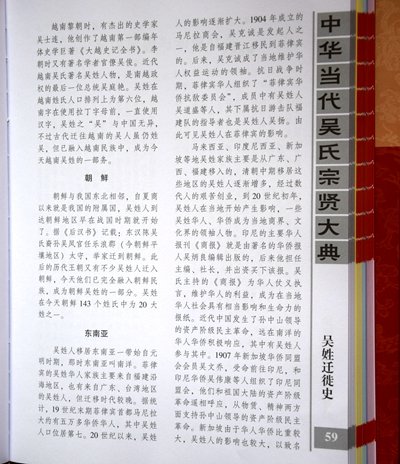 越南黎朝时，有杰出的史学家
吴士连，他创作了越南第一部编年
体史学巨著《大越史记全书》。李
朝时又有著名学者官僚吴俊。近代
越南吴氏著名吴姓人物，是南越政
权的最后一位总统吴庭艳。吴姓在
越南姓氏人口排列上为第六位，越
南字在使用拉丁字母前，一直使用
汉字，吴姓之“吴”与中国无异，
不过古代迁往越南的吴人虽仍姓
吴，但已融入越南民族中，成为今
天越南吴姓的一部务。
朝 鲜
朝鲜与我国东北相邻，自夏商
以来就是我国的附属国，吴姓人到
达朝鲜地区早在战国时期就开始
了。据《后汉书》记载：东汉陈吴
氏裔孙吴凤官任乐浪郡（今朝鲜平
壤地区）太守，举家迁到朝鲜。此
后的历代王朝又有不少吴姓人迁入
朝鲜，今天他们已完全融入朝鲜民
族，成为朝鲜吴姓的一部分。吴姓
在今天朝鲜 143 个姓氏中为 20 大
姓之一。
东南亚
吴姓人移居东南亚一带始自元
明时期，那时东南亚叫南洋。菲律
宾的吴姓华人家族主要来自福建沿
海地区，也有来自广东、台湾地区
的吴姓人，但迁移时代较晚。据统
计，19 世纪末期菲律宾首都马尼拉
大约有五万多华侨华人，其中吴姓
人口位居第七。20 世纪以来，吴姓
人的影响逐渐扩大。1904 年成立的
马尼拉商会，吴克诚是发起人之
一，他是自福建晋江移民到菲律宾
的。后来，吴克诚成了当地维护华
人权益运动的领袖。抗日战争时
期，菲律宾华人组织了“菲律宾华
侨抗敌委员会”，成员中有吴姓人
吴道盛等人，其下属抗日游击队福
建队的指导者也是吴姓人吴扬。由
此可见吴姓人在菲律宾的影响。
马来西亚、印度尼西亚、新加
坡等地吴姓家族主要是从广东、广
西、福建移入的，清朝中期移居这
些地区的吴姓人逐渐增多，经过数
代人的艰苦创业，到 20 世纪初年，
吴姓人在当地开始产生影响，一些
吴姓华人、华侨成为当地商界、文
化界的领袖人物。印尼的主要华人
报刊《商报》就是由著名的华侨报
人吴炳良编辑出版的，后来他担任
主编、社长，并出资买下该报。吴
氏主持的《商报》为华人仗义执
言，维护华人的利益，成为在当地
华人社会具有相当影响和生命力的
报纸。近代中国发生了孙中山领导
的资产阶级民主革命，远在南洋的
华人华侨积极响应，其中有吴姓人
参与其中。1907 年新加坡华侨同盟
会会员吴文乔，受命前往印尼，和
印尼华侨吴伟康等人组织了印尼同
盟会，他们和祖国大陆的资产阶级
革命遥相呼应，从物资、精神两方
面支持孙中山领导的资产阶级民主
革命。新加坡由于华人华侨比重较
大，吴姓人的影响也较大，以致名
中华当代吴氏宗贤大典
吴姓迁徙史
59